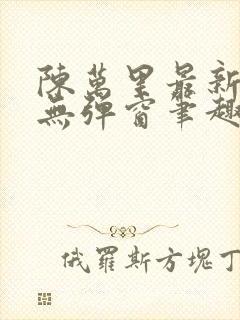 陳萬里最新
無彈窗筆趣
俄羅斯方塊丁